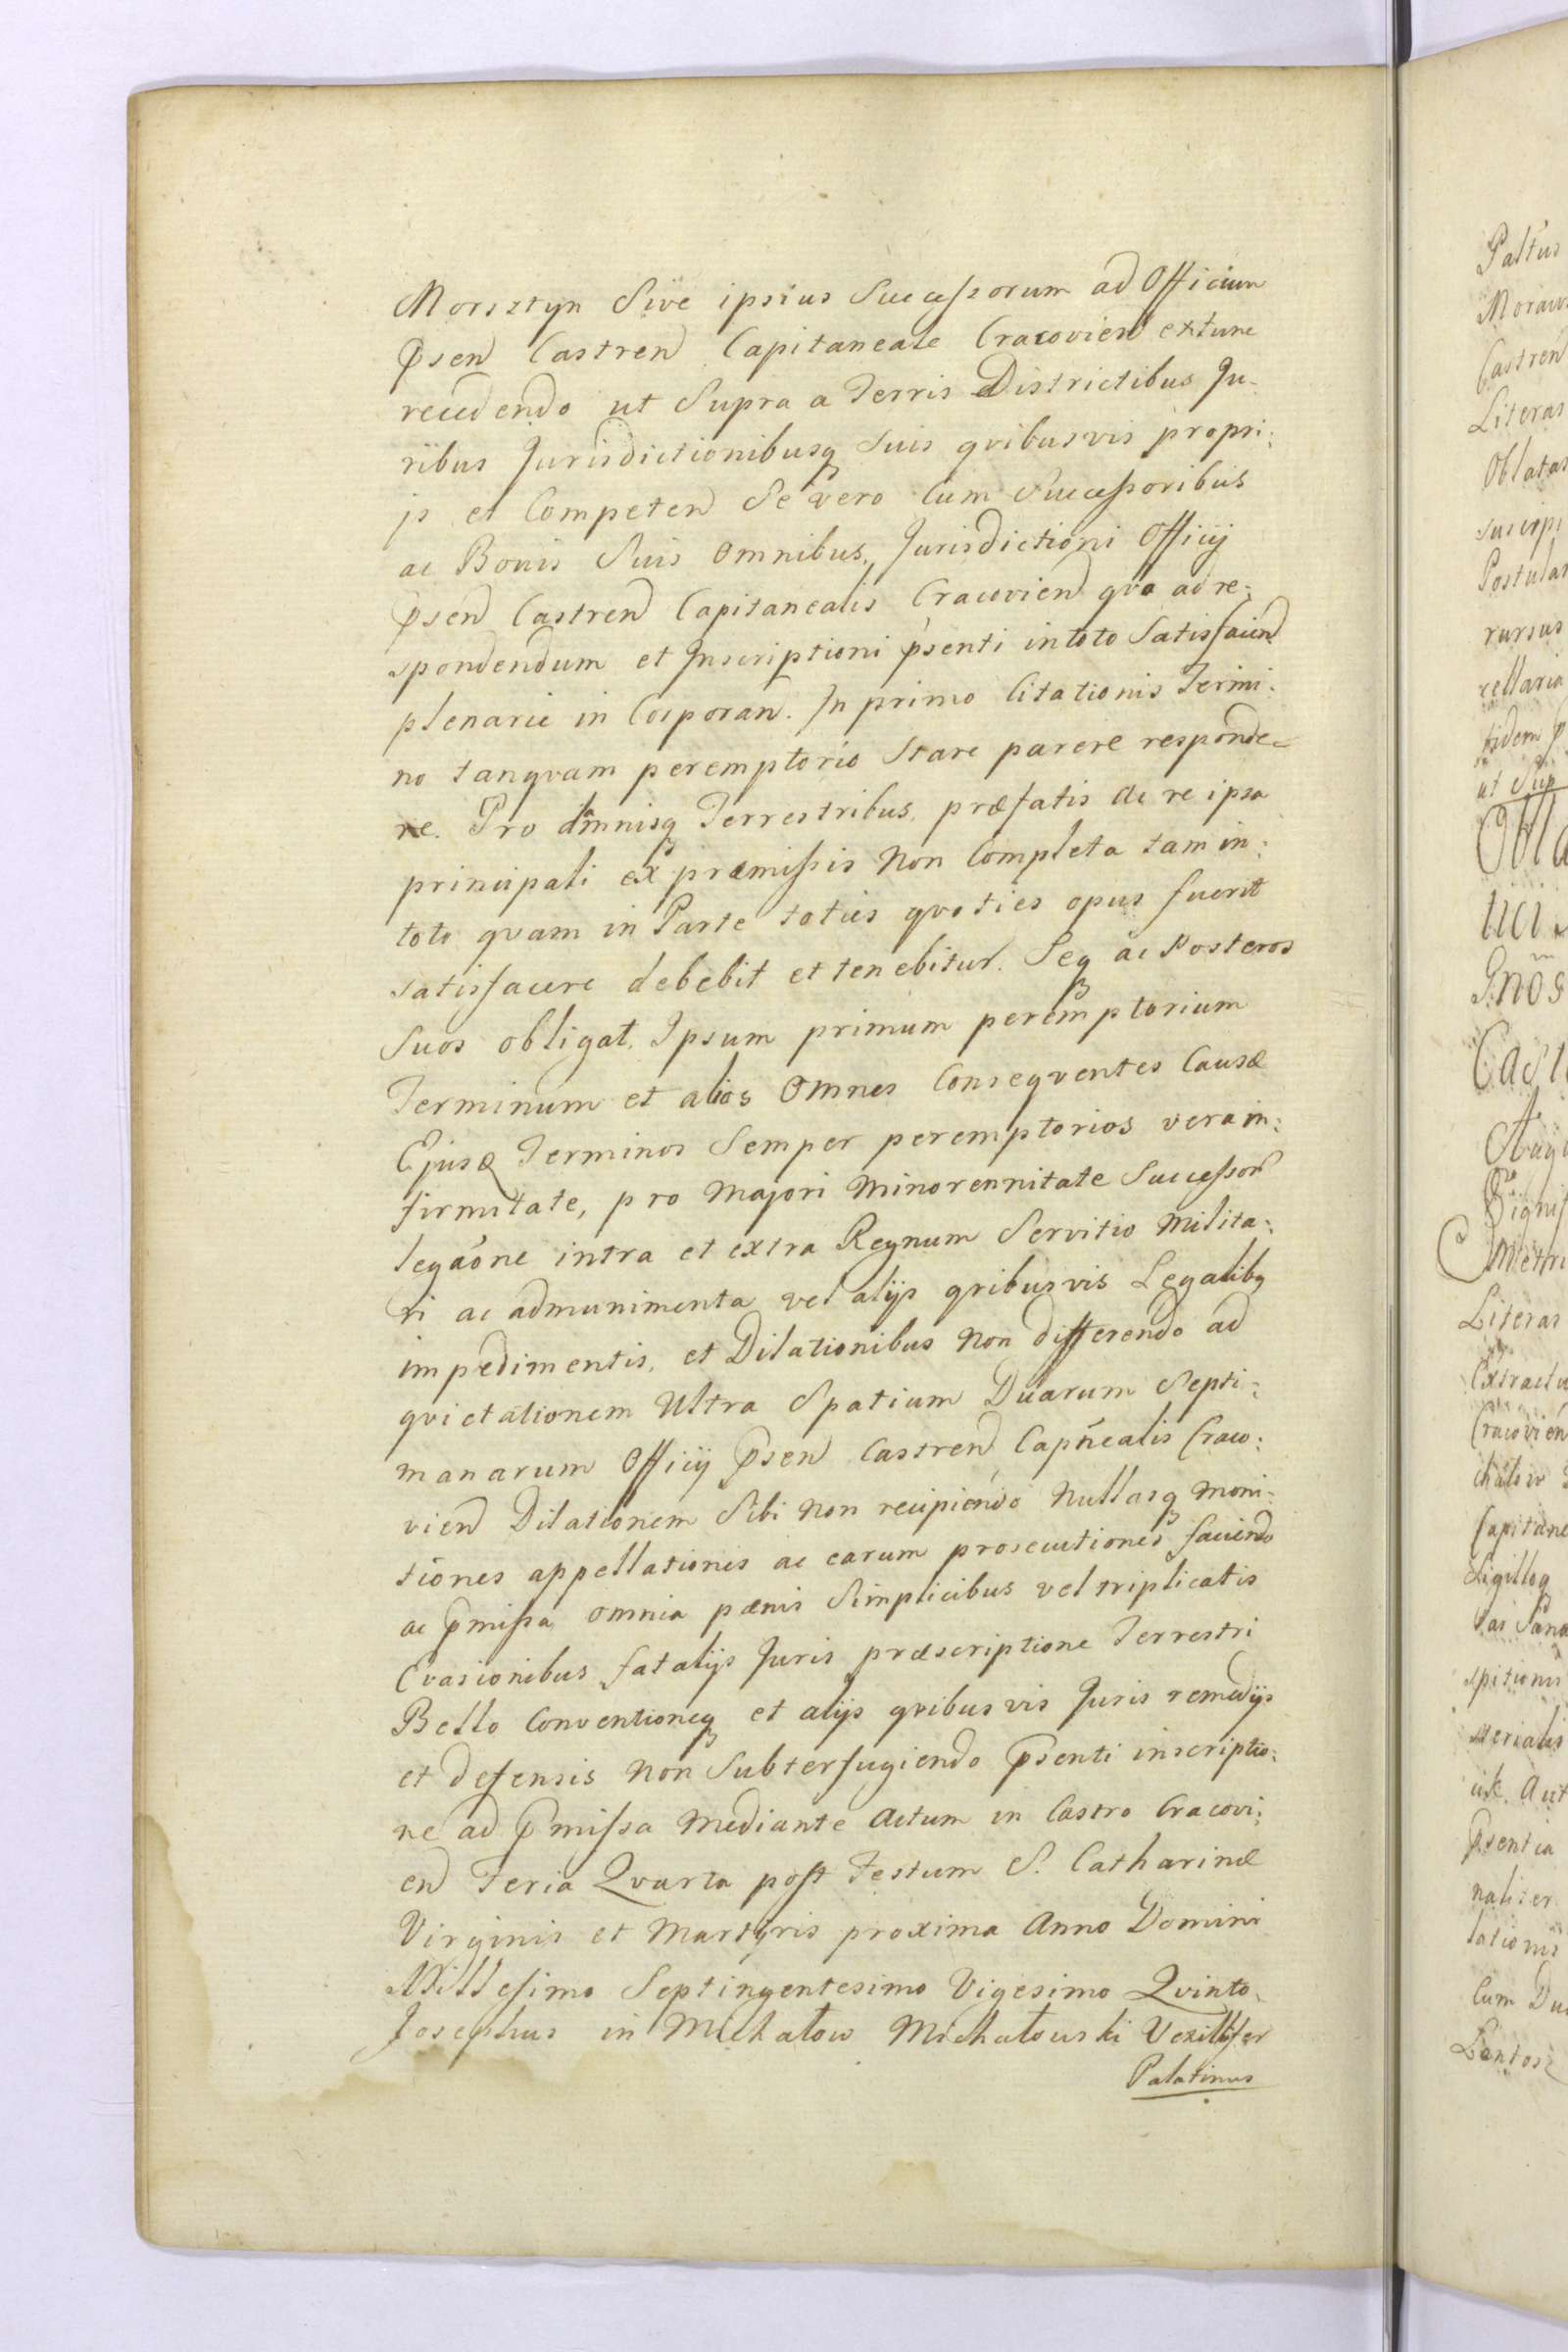 Morsztyn Sive ipsius Successorum ad Officium
Psen Castren Capitaneale Cracovien extunc
recedendo ut Supra a Terris Districtibus Ju-
ribus Jurisdictionibusq Suis qvibusvis propri:
js et Competen Se vero Cum Successoribus
ac Bonis Suis omnibus, Jurisdictioni Officij
Psen Castren Capitanealis Cracovien qvo ad re:
spondendum et Inscriptioni psenti intoto Satisfacien
plenarie in Corporan. In primo Citationis Termi:
no tanqvam peremptorio Stare parere responde-
re. Pro damnisq Terrestribus præfatis ac re ipsa
principali ex præmissis non Completa tam in:
toto qvam in Parte toties qvoties opus fuerit
satisfacere debebit et tenebitur. Seq ac Posteros
Suos obligat. Ipsum primum peremptorium
Terminum et alios Omnes Conseqventes Causæ
Ejusq Terminos Semper peremptorios vera in:
firmitate, pro Majori Minorennitate Successor
legaõne intra et extra Regnum Servitio Milita:
ri ac admunimenta vel alijs qvibusvis Legalibq
impedimentis, et Dilationibus non differendo ad
qvietationem Ultra Spatium Duarum Septi:
manarum Officij Psen Castren Capñealis Craco:
vien Dilationem Sibi non recipiendo Nullasq moni:
tiones appellationis ac earum prosecutiones faciendo
ac Pmissa omnia pænis Simplicibus vel triplicatis
Evasionibus fatalijs Juris præscriptione Terrestri
Bello Conventioneq et alijs qvibus vis Juris remedijs
et defensis non Subterfugiendo Psenti inscriptio:
ne ad Pmissa Mediante Actum in Castro Cracovi:
en Feria Qvarta post Festum S. Catharinæ
Virginis et Martyris proxima Anno Domini
Millesimo Septingentesimo Vigesimo Qvinto.
Josephus in Michałow Michałowski Vexillifer
Palatinus
Paltus
Castren
Literas
Oblatas
suscepi
Postulas
rursus
cellaria
fidem p
ut Sup
Obla
Gnõs
Cast
Literas
Extractu
Cracovien
Capitane
Sigilloq
spitionis
Psentia
naliter
Cum Du